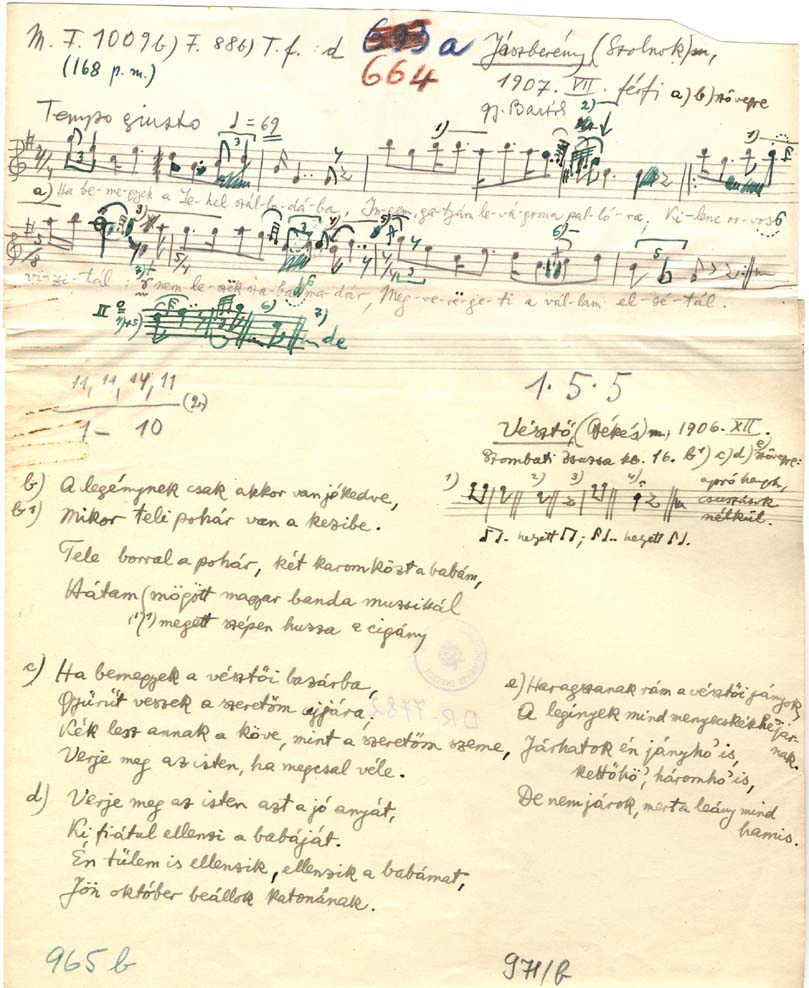 M. F. 1009b) F. 88b) T. f. : d 693 a Jászberény (Szolnok) m,
(168 p. m.) 664 1907. VII. férfi a) b) szövegre
gy. Bartók
Tempo giusto ♩ = 69
a) Ha be-me-gyek a Le-hel szál-lo-dá-ba, In-gem, ga-tyám le-vá-gom a pal-ló-ra, Ki-lenc or-vos
vi-zi-tál : nem le-szek sza-bad ma-dár, Meg-ve-rë-ge-ti a vál-lam el-sé-tál.
II
de
11, 11, 14, 11 (2.)
1 – 10
1 · 5 · 5
Vésztő, (Békés) m, 1906. XII.
Szombati Zsuzsa ko. 16. b¹) c) d) e) szövegre:
1) 2) 3) 4) apró hangok, csuszások nélkül.
helyett ; helyett
b) A legénynek csak akkor van jókedve,
b1) Mikor teli pohár van a kezibe.
Tele borral a pohár, két karom közt a babám,
Hátam (mögött magyar banda muzsikál
1) megett szépen huzza a cigány
c) Ha bemegyek a vésztői bazárba,
Gyűrűt veszek a szeretőm ujjára,
Kék lesz annak a köve, mint a szeretőm szeme,
Verje meg az isten, ha megcsal véle.
d) Verje meg az isten azt a jó anyát,
Ki fiátul ellenzi a babáját.
Én tűlem is ellenzik, ellenzik a babámat,
Jön október beállok katonának.
e) Haragszanak rám a vésztői jányok,
A legények mind menyecskékhe' járnak.
Járhatok én jányhó' is,
kettőhö', háromhó' is,
De nem járok, mert a leány mind
hamis.
DR-7782
965 b
971/b